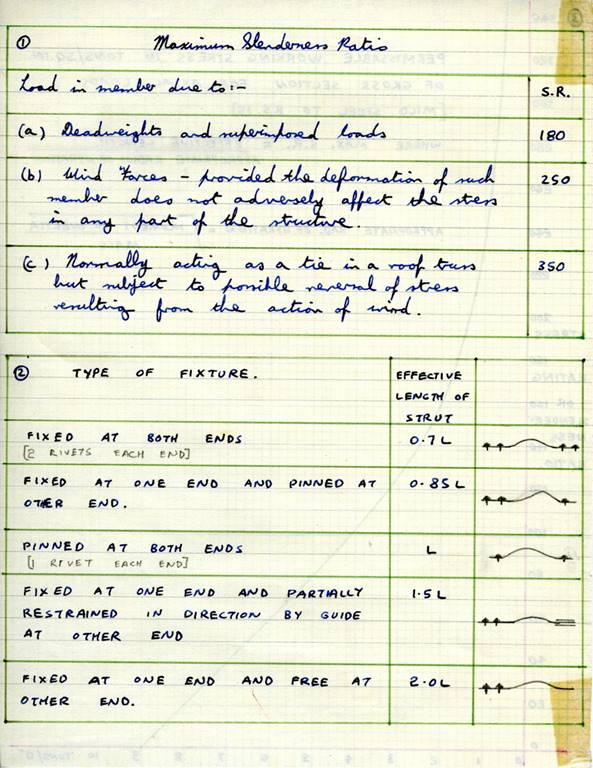 ① Maximum Slenderness Ratio
Load in member due to:- S.R.
(a) Deadweights and superimposed loads 180
(b) Wind Forces - provided the deformation of such 250
member does not adversely affect the stress
in any part of the structure.
(c) Normally acting as a tie in a roof truss 350
but subject to possible reversal of stress
resulting from the action of wind.
② TYPE OF FIXTURE. EFFECTIVE
LENGTH OF
STRUT
FIXED AT BOTH ENDS 0.7L
[2 RIVETS EACH END]
FIXED AT ONE END AND PINNED AT 0.85L
OTHER END.
PINNED AT BOTH ENDS L
[1 RIVET EACH END]
FIXED AT ONE END AND PARTIALLY 1.5L
RESTRAINED IN DIRECTION BY GUIDE
AT OTHER END
FIXED AT ONE END AND FREE AT 2.0L
OTHER END.